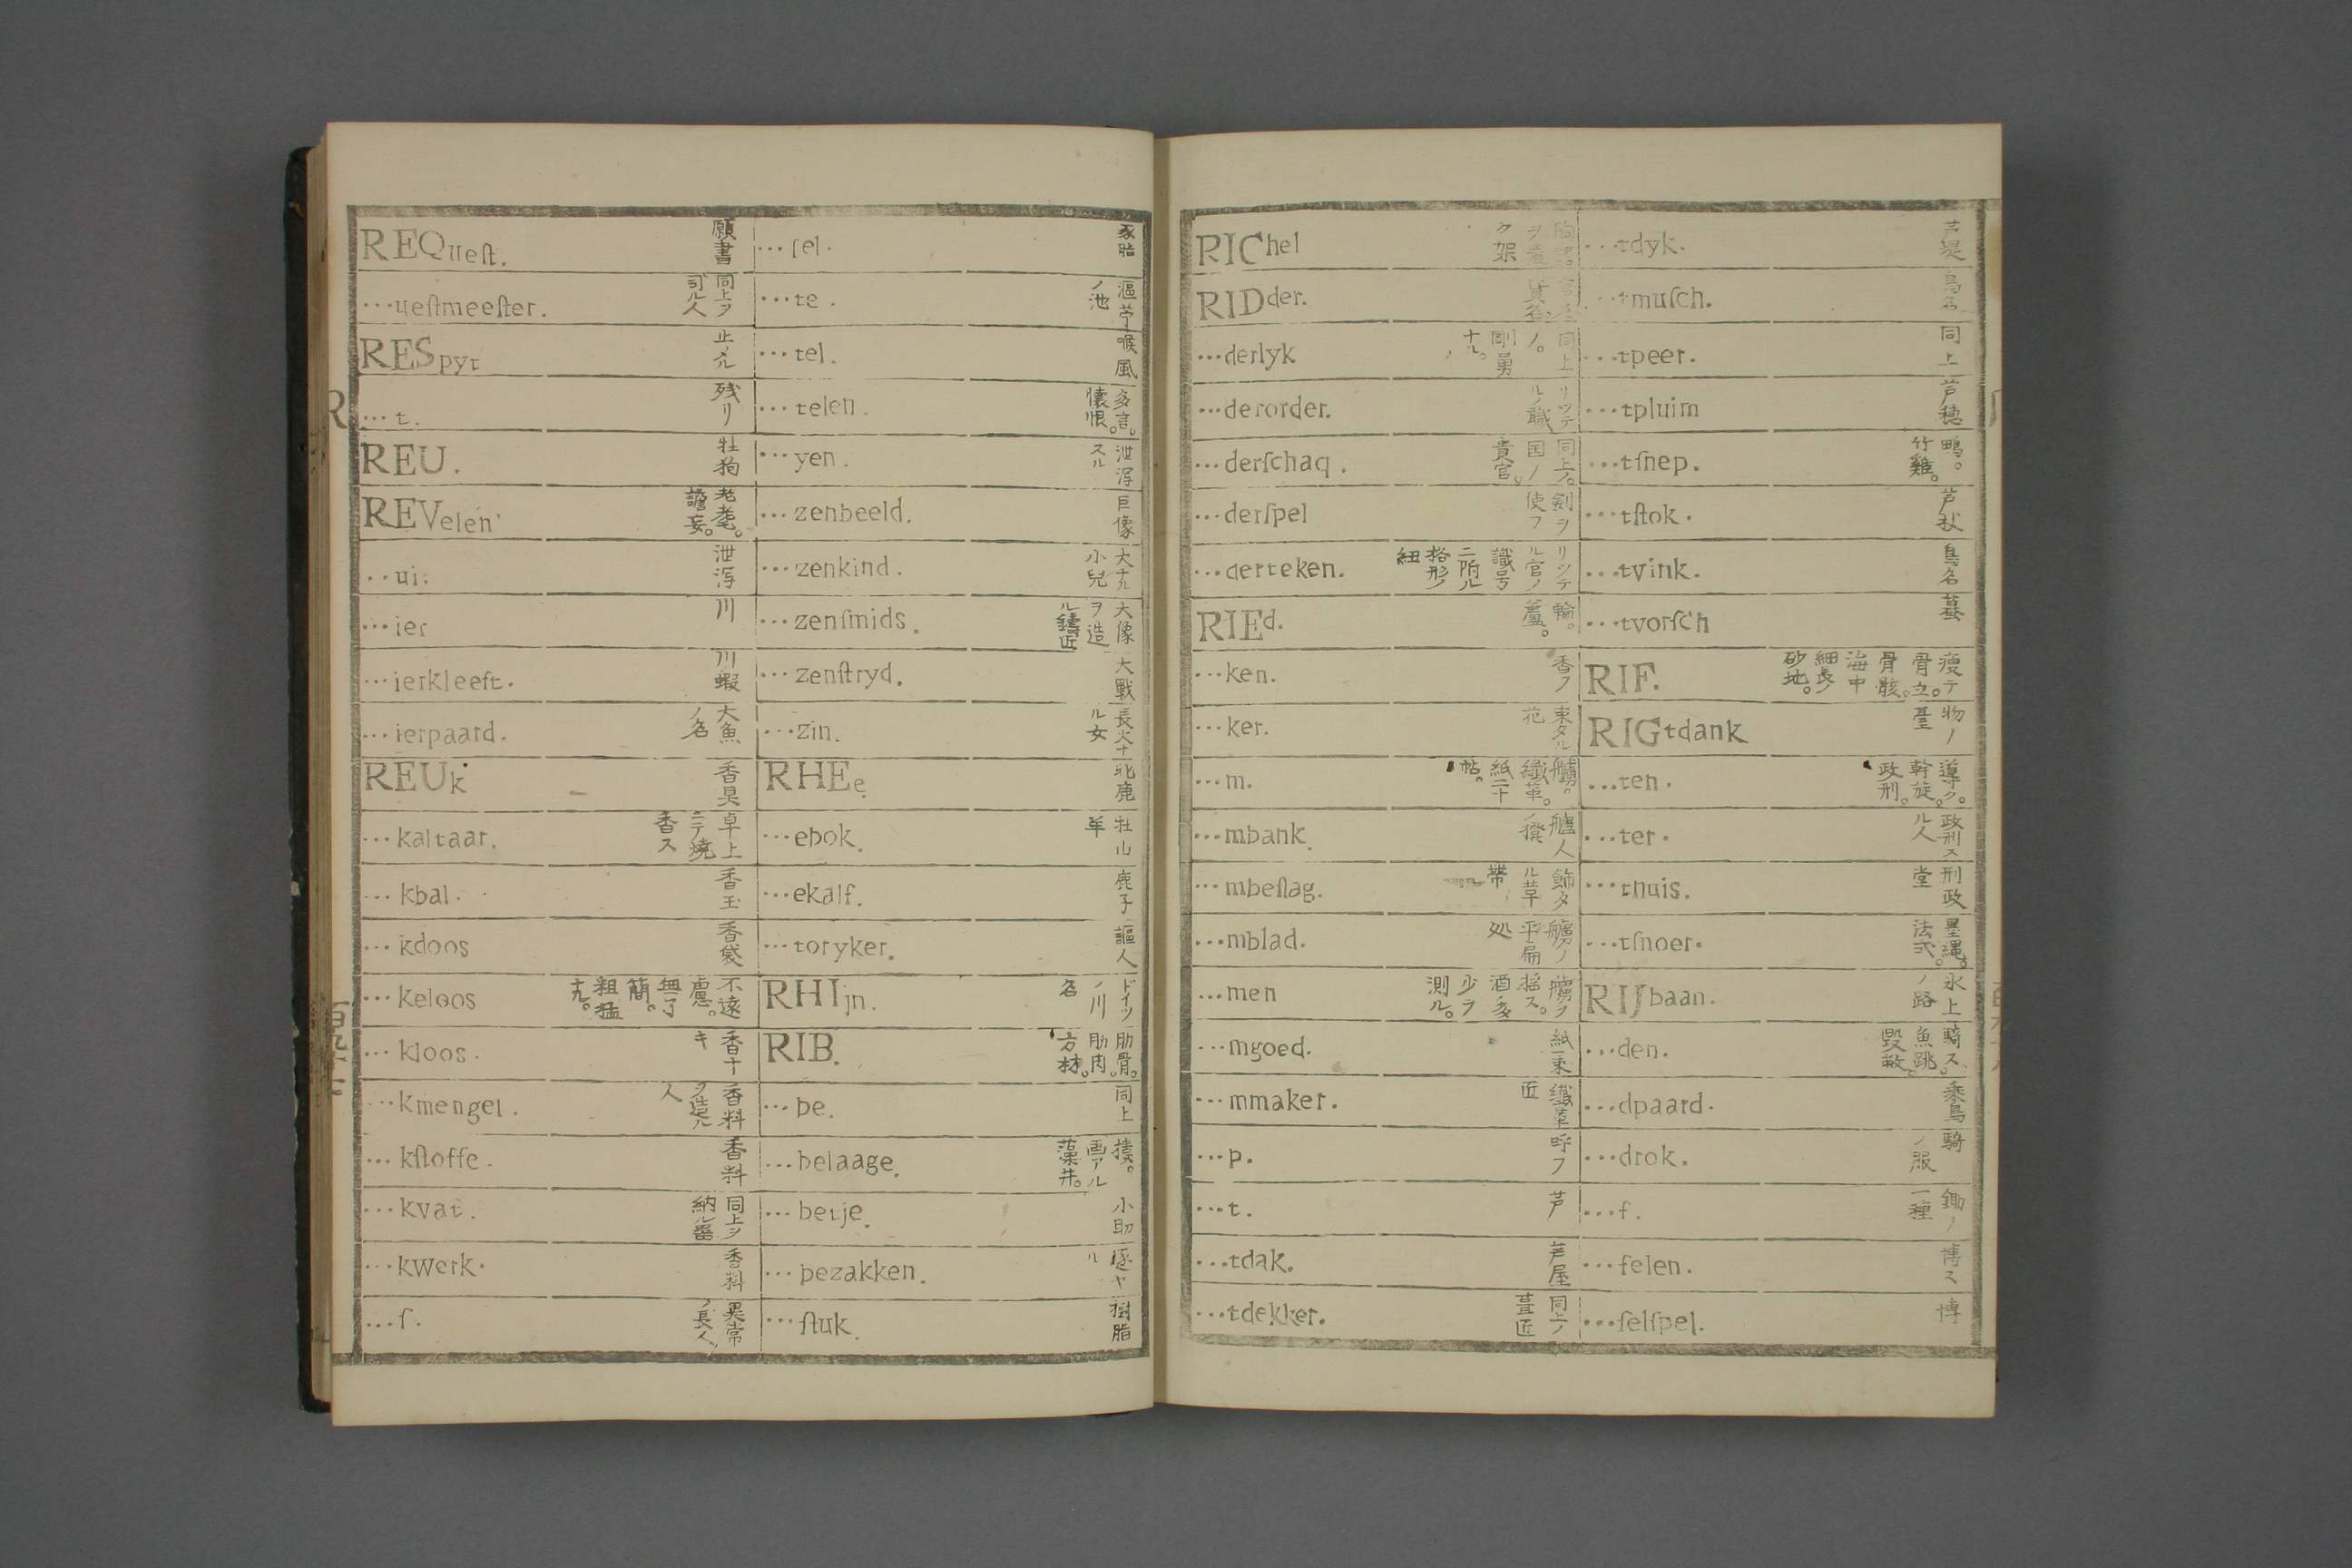 REQueſt. 願書
...ueſtmeeſter. 同上ヲ司ル人
RESpyt 止メル
...t. 残リ
REU. 牡狗
REVelen 老耄。譫妄。
..ui. 泄泻
...ier 川
...ierkleeft. 川蝦
...ierpaard. 大魚ノ名
REUk 香臭
...kaltaar. 卓上ニテ焼香ス
...kbal. 香玉
...kdoos 香袋
...keloos 不遠慮。無了簡。粗猛ナル。
...kloos. 香ナキ
...kmengel. 香料ヲ造ル人
...kſtoffe. 香料
...kvat. 同上ヲ納ル器
...kwerk. 香料
...ſ. 異常ノ長人
...ſel. 豕脂
...te.
...tel. 喉風
...telen. 多言。懐恨。
...yen. 泄泻スル
...zenbeeld. 巨像
...zenkind. 大ナル小兒
...zenſmids. 大像ヲ造ル鑄匠
...zenſtryd. 大戰
...zin. 長大ナル女
RHEe. 牝鹿
...ebok. 牡山羊
...ekalf. 鹿子
...toryker. 謳人
RHIjn. ドイツノ川名
RIB. 肋骨。肋肉。方材。
...be. 同上
...belaage. 画アル藻井。
...betje. 小肋
...bezakken.
...ſtuk. 樹脂
RIChel
RIDder.
...derlyk 同上ノ。剛勇ナル。
...derorder. リッテルノ職
...derſchaq. 同上ノ。国ノ貴官。
...derſpel 剣ヲ使フ
...derteken. リッテル官ノ識号ニ附ル格形ノ紐
RIEd. 輪。蘆。
...ken. 香フ
...ker. 束タル花
...m.
...mbank.
...mbeſlag. 飾タル革帯
...mblad. 艣ノ平扁処
...men 艣ヲ揺ス。酒多少ヲ測ル。
...mgoed. 紙束
...mmaker. 織革匠
...p. 呼フ
...t. 芦
...tdak. 芦屋
...tdekker. 同上ノ葺匠
...tdyk. 芦堤
...tmuſch. 鳥名
...tpeer. 同上
...tpluim 芦穂
...tſnep. 鴫。竹雞。
...tſtok. 芦杖
...tvink. 鳥名
...tvorſch 蟇
RIF. 瘦テ骨立。骨骸。海中細長ノ砂地。
RIGtdank 物ノ臺
...ten. 導ク。幹旋。政刑。
...ter. 政刑スル人
...thuis. 刑政堂
...tſnoer. 墨縄。法式。
RIJbaan. 氷上ノ路
...den. 騎ス。魚跳。毀敏。
...dpaard. 乘馬
...drok. 騎ノ服
...f. 鋤ノ一種
...felen. 博ス
...felſpel. 博